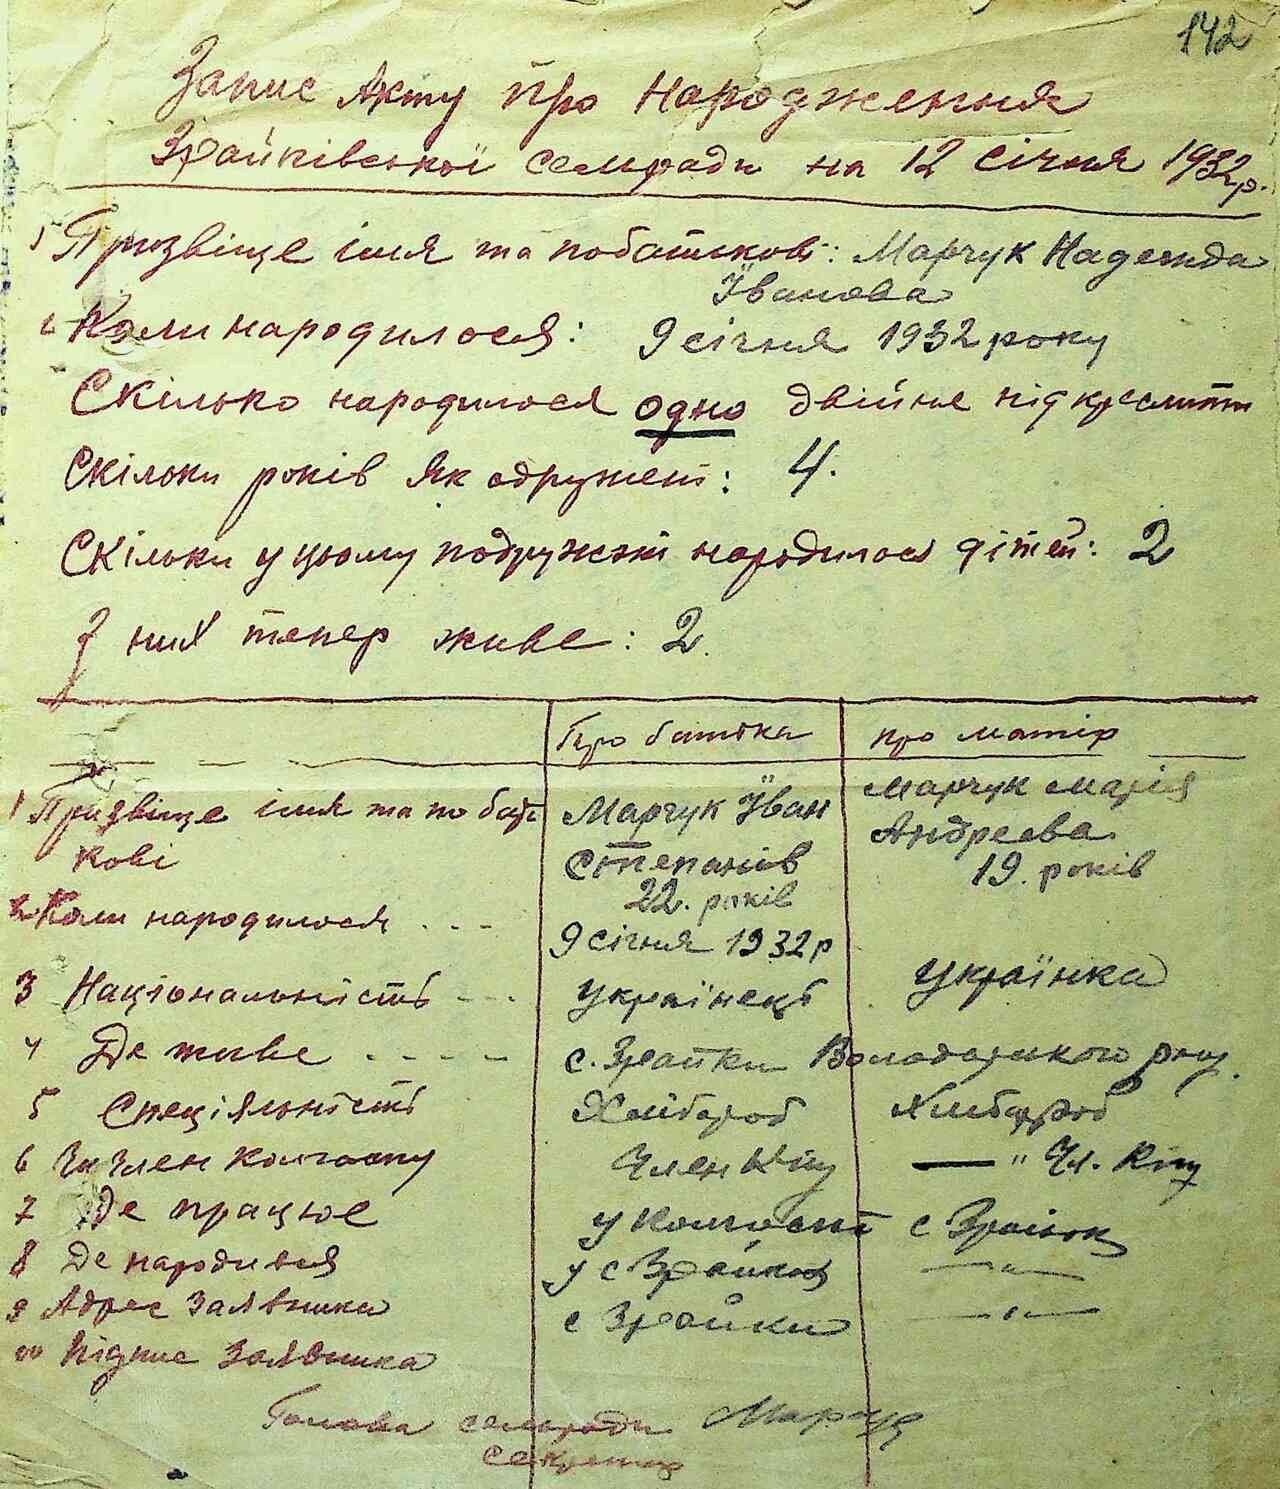 142
Запис Акту про Народження
Зрайківської сельради на 12 січня 1932 р.
1 Призвіще імя та побатькові: Марчук Надежда
Їванова
2 Коли народилося: 9 січня 1932 року
Скілько народилося одно двійне підкреслити
Скільки років як одружені: 4.
Скільки у цьому подружжі народилося дітей: 2
З них тепер живе: 2.
Про батька про матір
1 Призвіще імя та по бать Марчук Їван Марчук Марія
кові Степанів Андреєва
22. років 19. років
2. Коли народилося . . . 9 січня 1932 р
3 Національність - - - Українець Українка
4 Де живе - - - - с. Зрайки Володарського рну.
5 Спеціяльність Хлібороб Хлібороб
6 Чи Член колгоспу Член К-пу — " Чл. К-пу
7 Де працює у колгоспі с Зрайок
8 Де народився у с Зрайках — " —
9 Адрес Заявника с Зрайки — " —
10 Підпис Заявника
Голова сельради Марчук
секретар